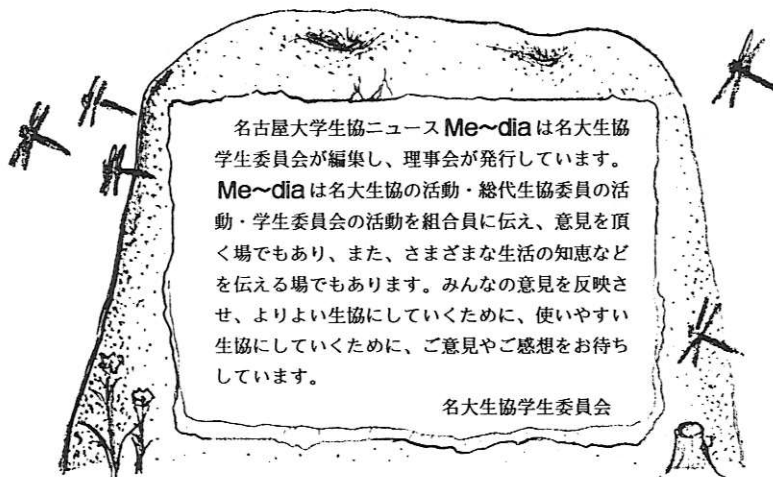 名古屋大学生協ニュース Me~dia は名大生協
学生委員会が編集し、理事会が発行しています。
Me~dia は名大生協の活動・総代生協委員の活
動・学生委員会の活動を組合員に伝え、意見を頂
く場でもあり、また、さまざまな生活の知恵など
を伝える場でもあります。みんなの意見を反映さ
せ、よりよい生協にしていくために、使いやすい
生協にしていくために、ご意見やご感想をお待ち
しています。
名大生協学生委員会